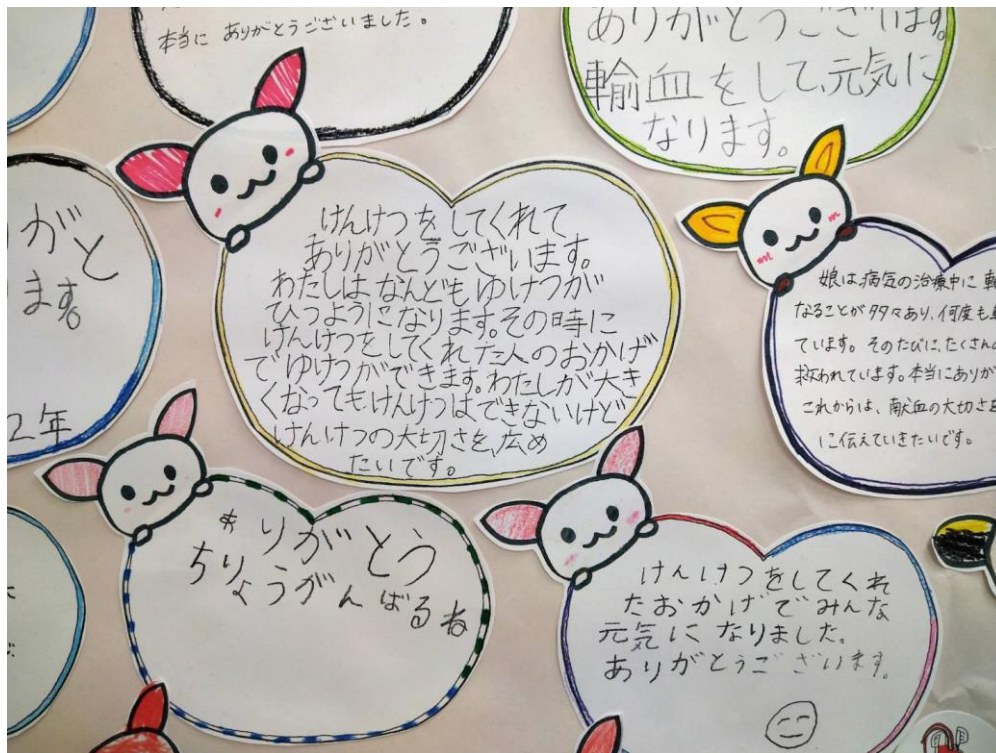 本当に ありがとうございました。
ありがとうございます。
輸血をして、元気に
なります。
がと
ます。
2年
けんけつを してくれて
ありがとうございます。
わたしは なんども ゆけつが
ひつようになります。その時に
けんけつをしてくれた人のおかげ
でゆけつができます。わたしが大き
くなっても けんけつは できないけど
けんけつの大切さを、広め
たいです。
娘は病気の治療中に 輸
なることが多々あり、何度も
ています。そのたびに、たくさんの
救われています。本当にありが
これからは、献血の大切さを
に伝えていきたいです。
ありがとう
ちりょうがんばるね
けんけつをしてくれ
たおかげでみんな
元気に なりました。
ありがとうございます。